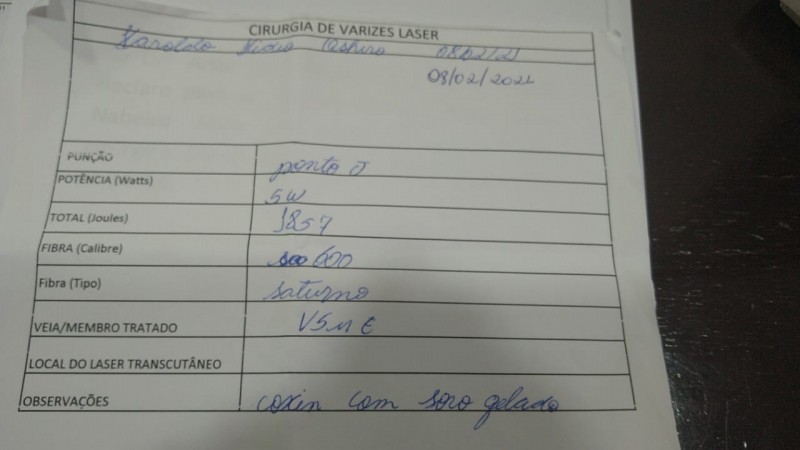 CIRURGIA DE VARIZES LASER
Haroldo Oshiro 08/02/21
08/02/2021
PUNÇÃO ponto J
POTÊNCIA (Watts) 5W
TOTAL (Joules) 1857
FIBRA (Calibre) 600
Fibra (Tipo) saturno
VEIA/MEMBRO TRATADO VSM E
LOCAL DO LASER TRANSCUTÂNEO
OBSERVAÇÕES coxin com soro gelado